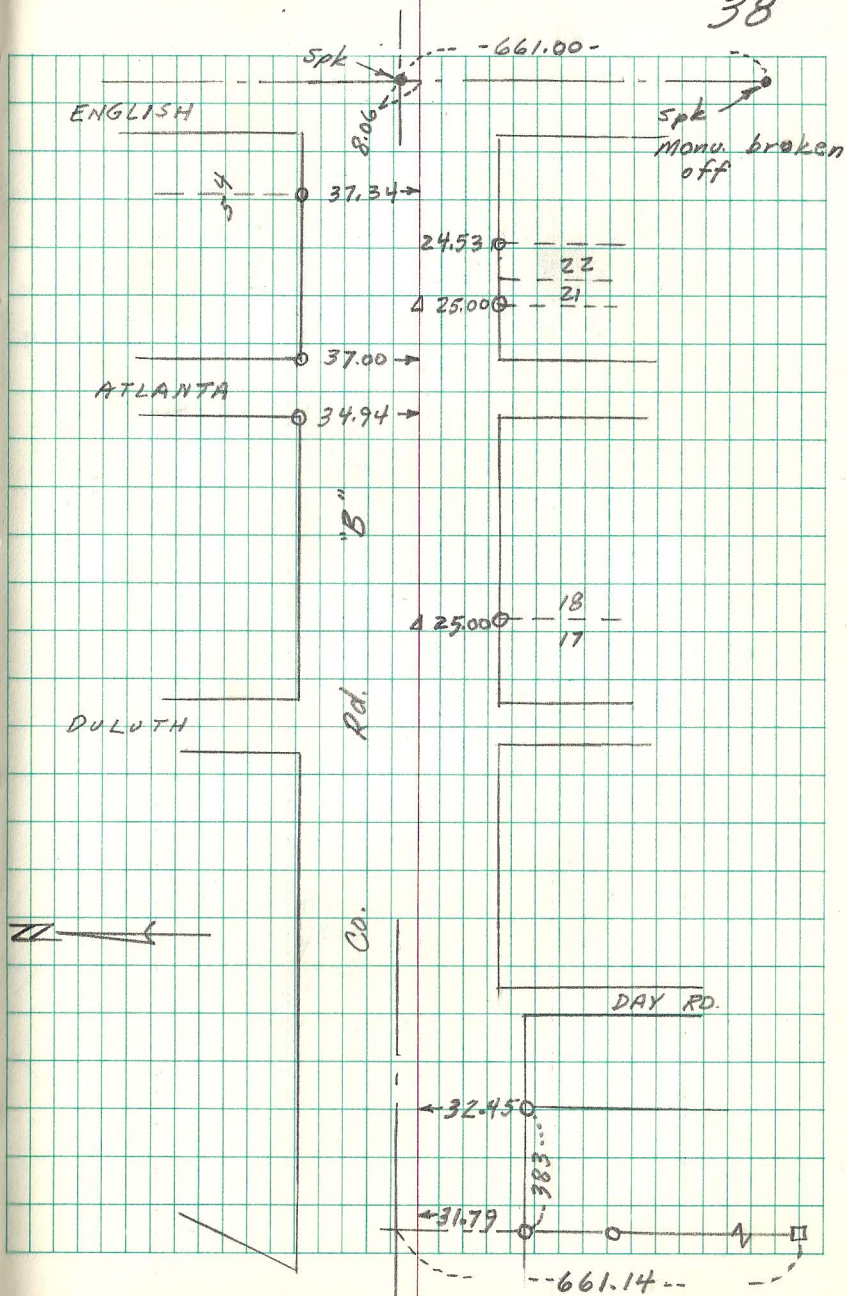 38
spk
-661.00-
8.06
spk
monu. broken
off
ENGLISH
4
5
37.34
24.53
22
21
Δ 25.00
37.00
ATLANTA
34.94
"B"
Δ 25.00
18
17
Rd.
DULUTH
N
Co.
DAY RD.
32.45
383
31.79
--661.14--